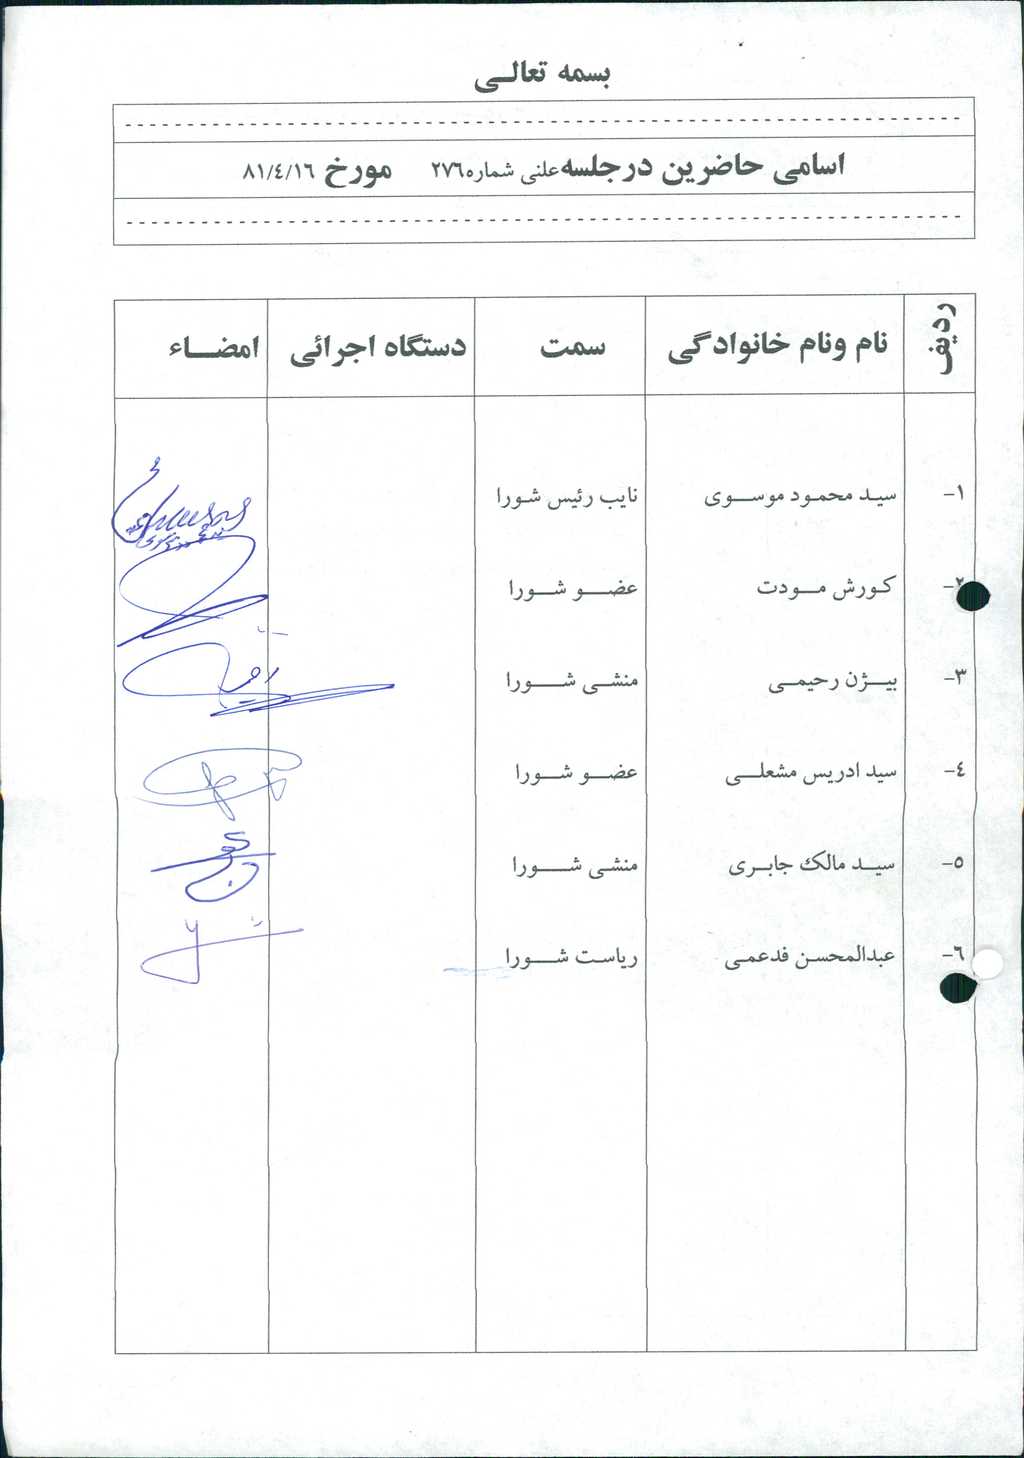 بسمه تعالی
اسامی حاضرین درجلسه علنی شماره ۲۷۶ مورخ ۸۱/٤/۱٦
ردیف نام ونام خانوادگی سمت دستگاه اجرائی امضاء
۱- سید محمود موسوی نایب رئیس شورا
۲- کورش مودت عضو شورا
۳- بیژن رحیمی منشی شورا
٤- سید ادریس مشعلی عضو شورا
۵- سید مالک جابری منشی شورا
٦- عبدالمحسن فدعمی ریاست شورا